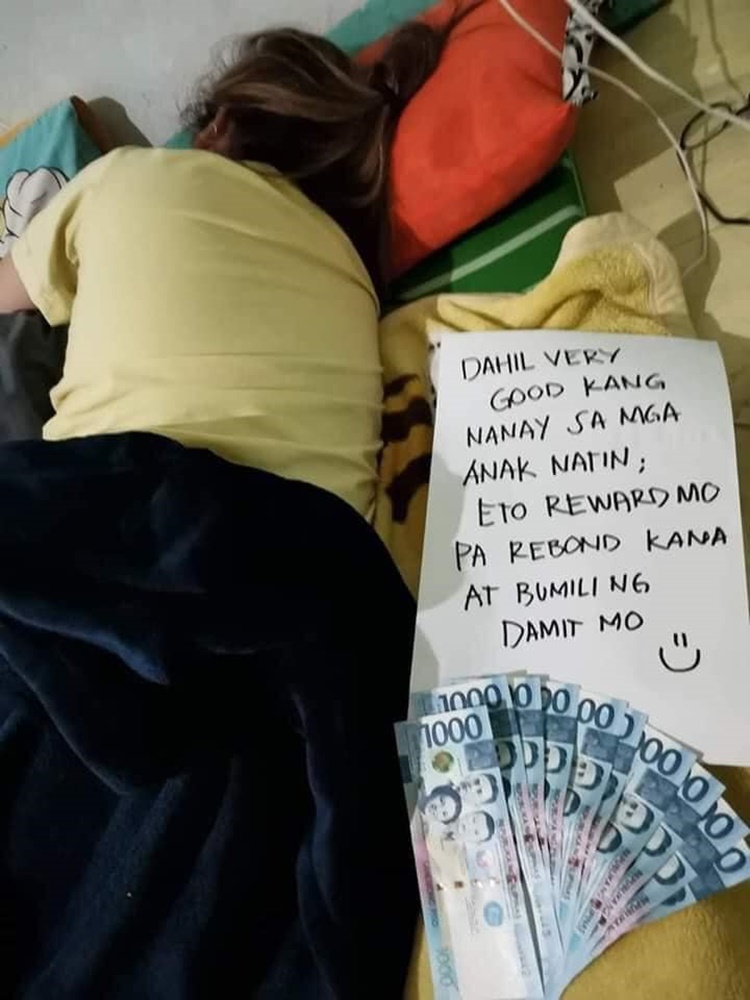 DAHIL VERY
GOOD KANG
NANAY SA MGA
ANAK NATIN;
ETO REWARD MO
PA REBOND KANA
AT BUMILI NG
DAMIT MO
1000
1000